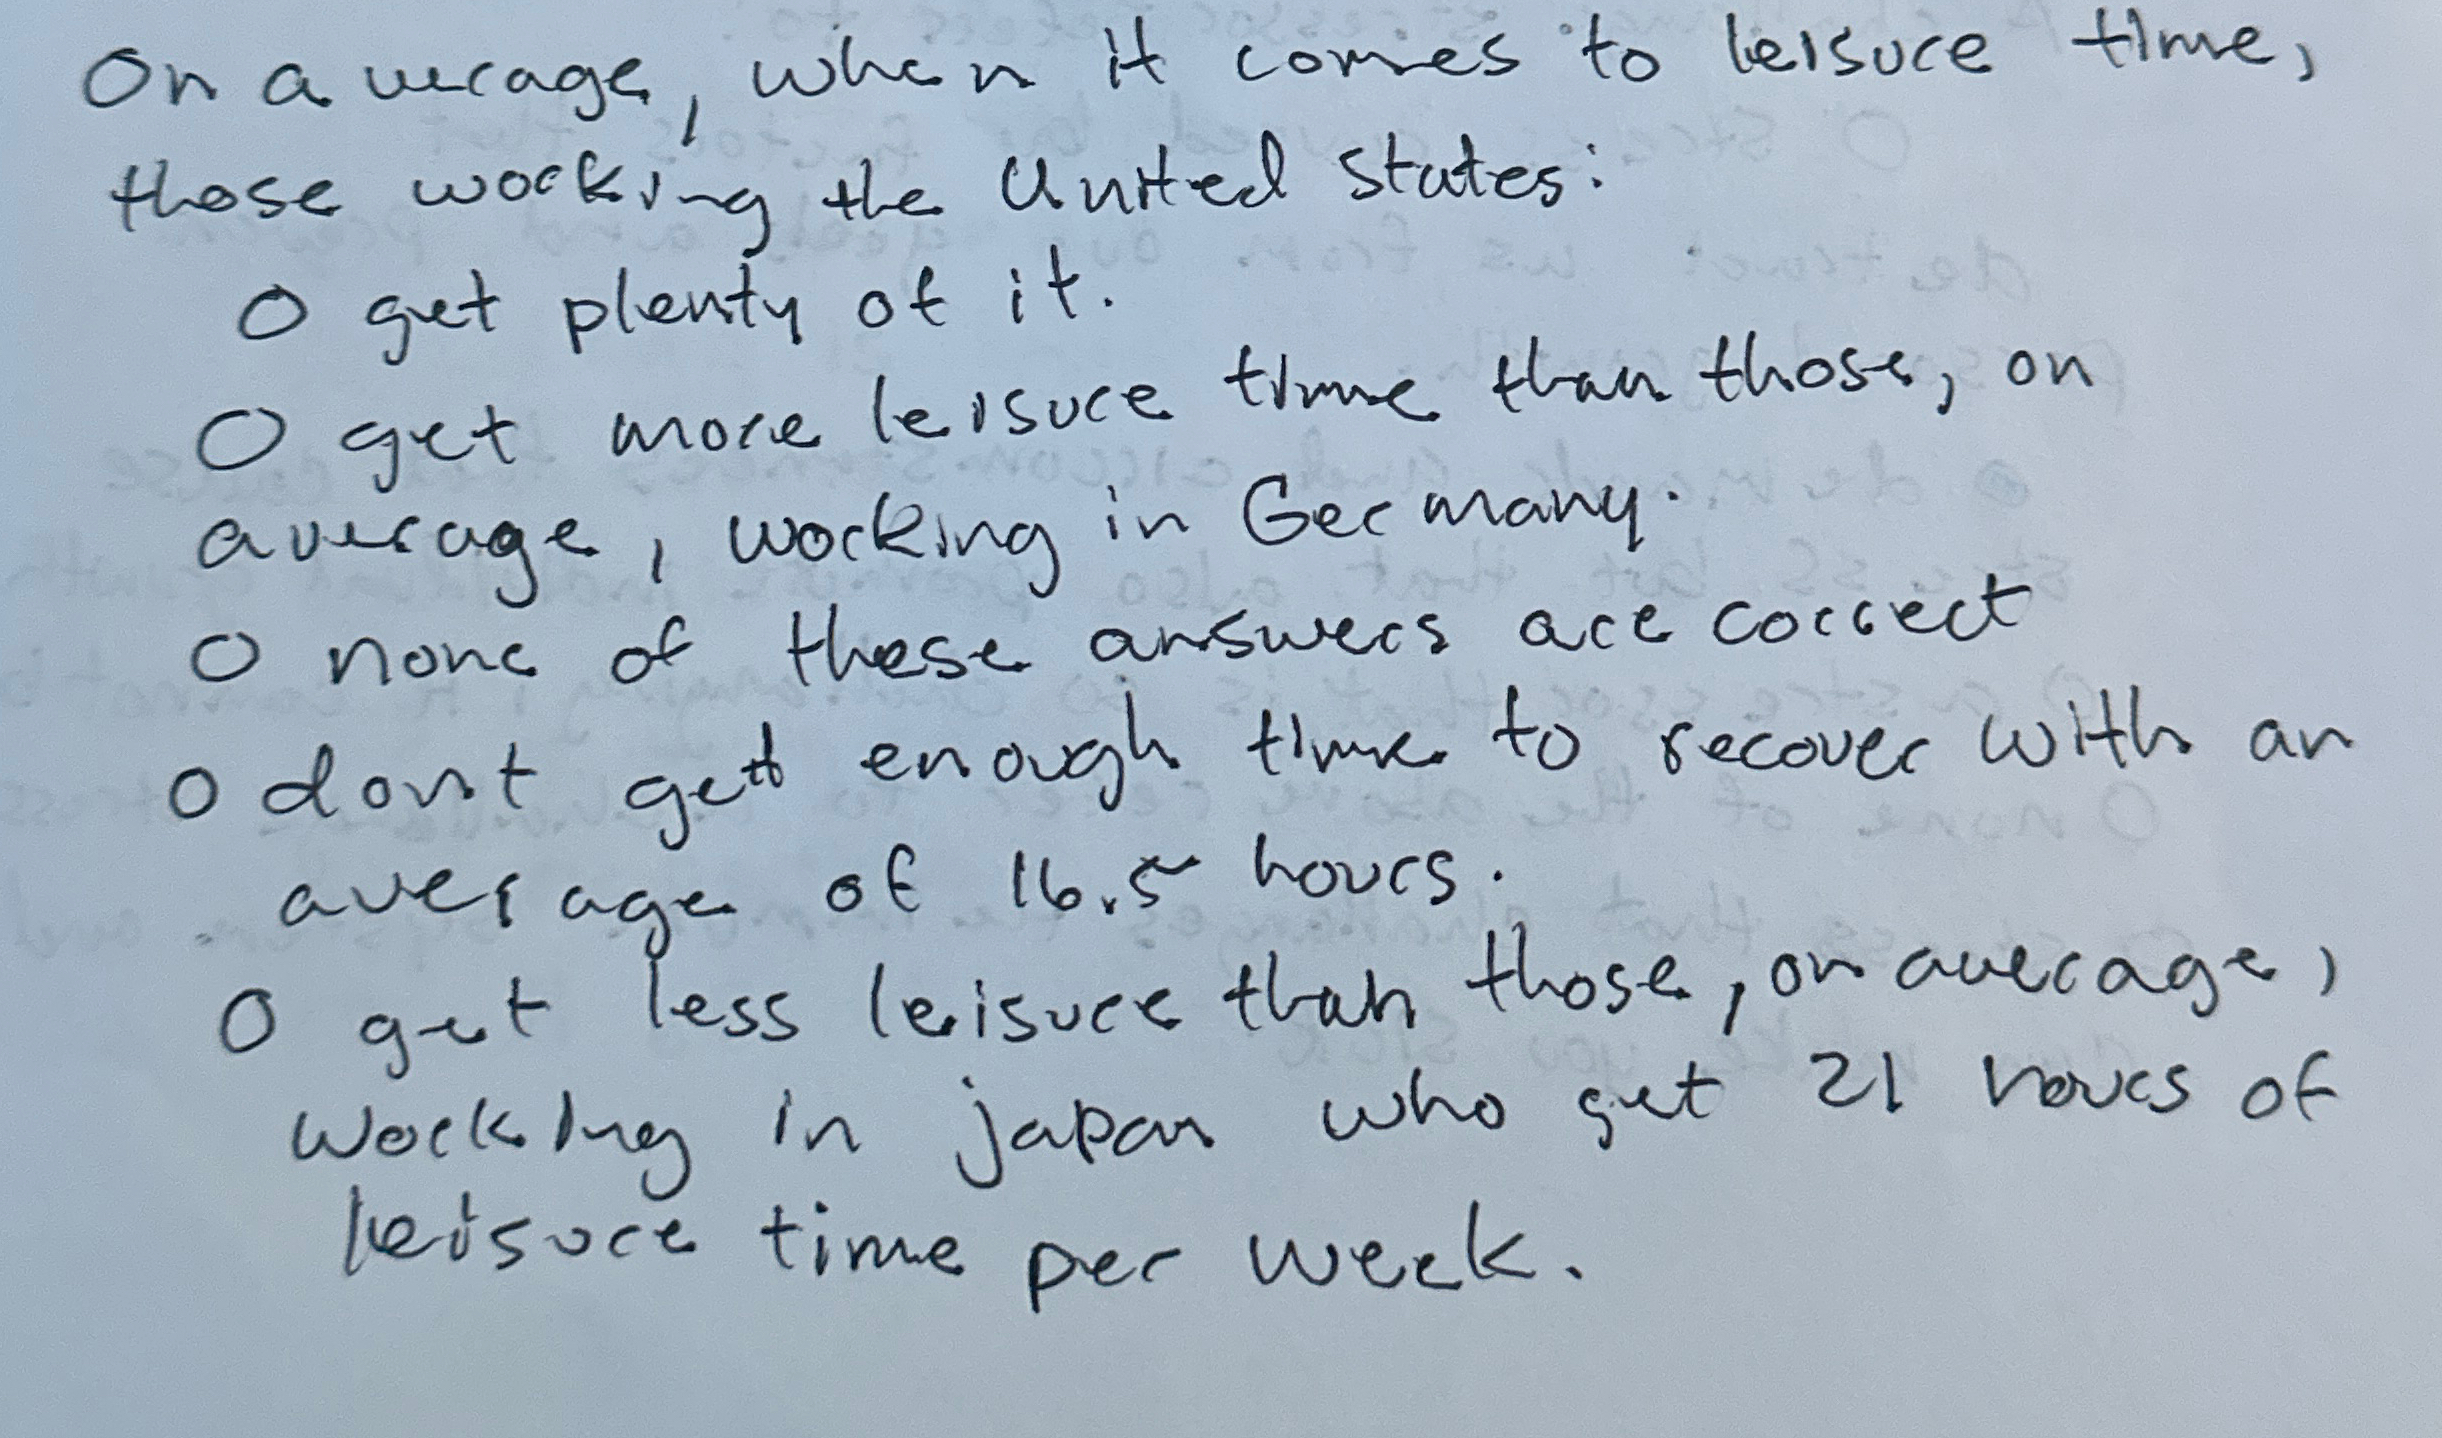 On average, when it comes to leisure time,
those working the United States:
O get plenty of it.
O get more leisure time than those, on
average, working in Germany.
O none of these answers are correct
O dont get enough time to recover with an
average of 16.5 hours.
O get less leisure than those, on average,
working in japan who get 21 hours of
leisure time per week.